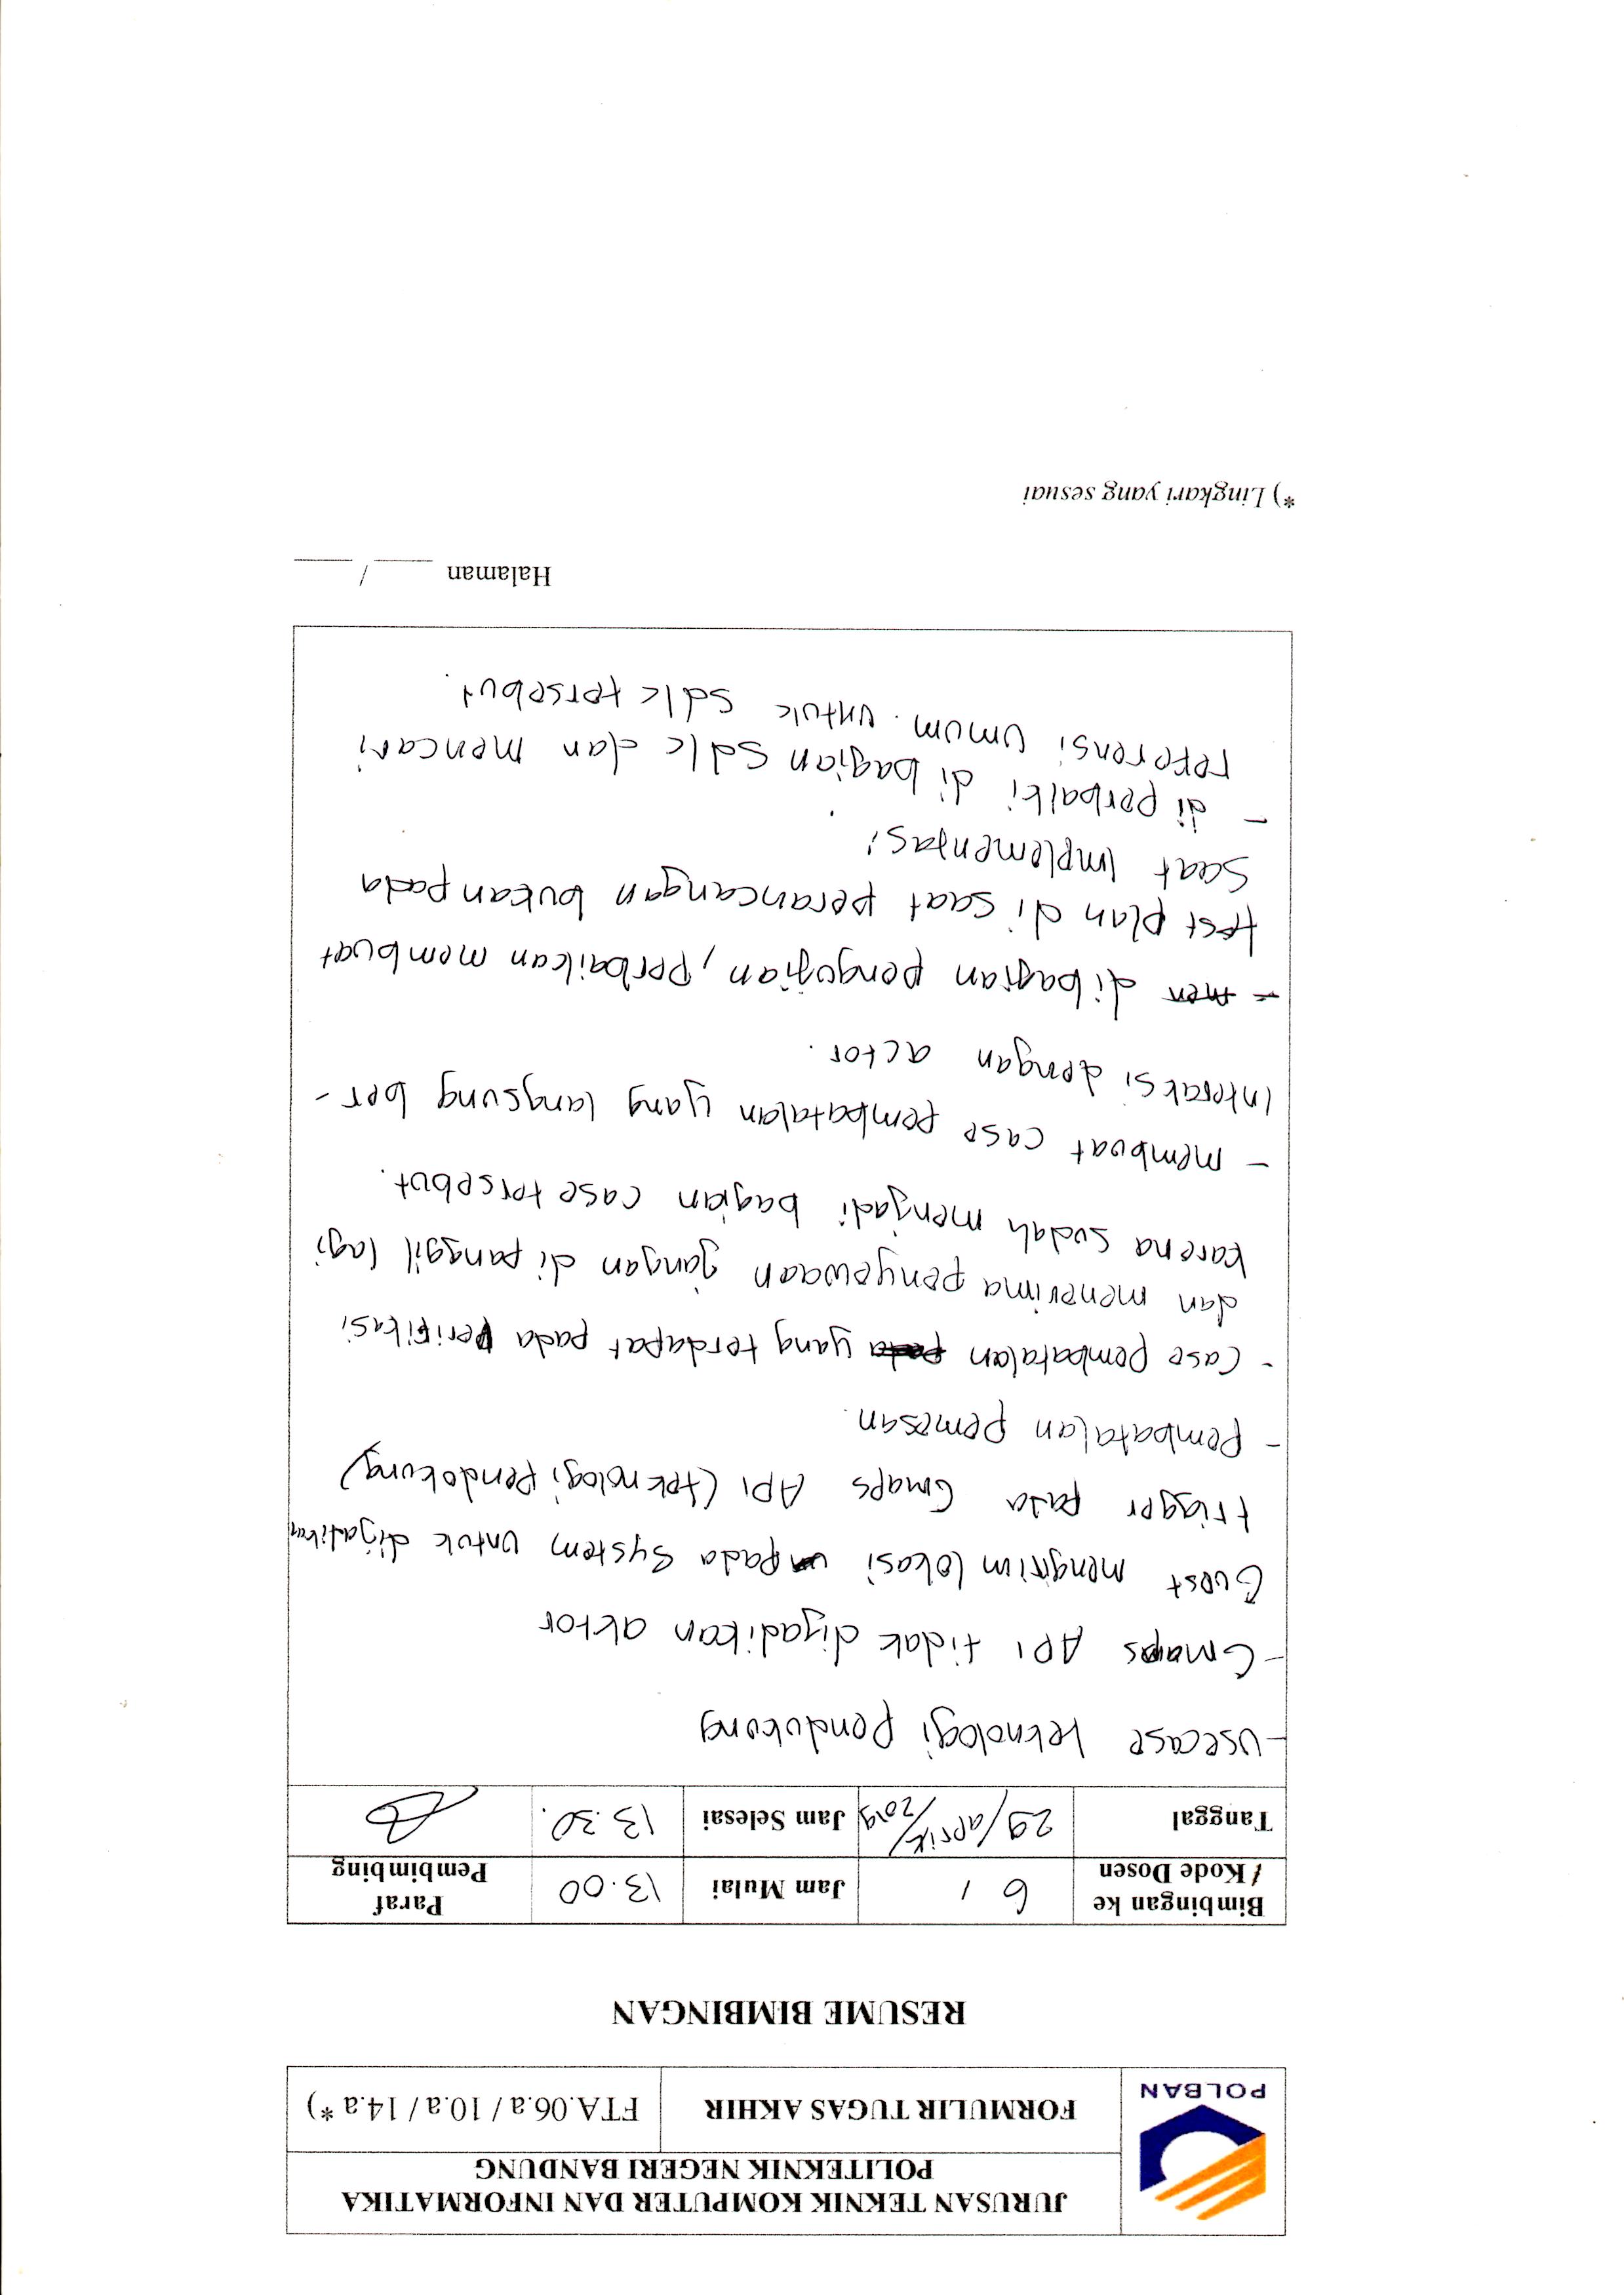 POLBAN
JURUSAN TEKNIK KOMPUTER DAN INFORMATIKA
POLITEKNIK NEGERI BANDUNG
FORMULIR TUGAS AKHIR
FTA.06.a / 10.a / 14.a *)
RESUME BIMBINGAN
Bimbingan ke / Kode Dosen
6 /
Jam Mulai
13.00
Paraf Pembimbing
Tanggal
29/april/2019
Jam Selesai
13.30.
- usecase teknologi pendukung
- Gmaps API tidak dijadikan aktor
Guest mengirim lokasi pada system untuk dijadikan
trigger pada Gmaps API (teknologi pendukung)
- Pembatalan pemesan.
- Case pembatalan yang terdapat pada verifikasi
dan menerima penyewaan jangan di panggil lagi
karena sudah menjadi bagian case tersebut.
- membuat case pembatalan yang langsung ber-
interaksi dengan actor.
- men dibagian pengujian, perbaikan membuat
test plan di saat perancangan bukan pada
saat implementasi
- di perbaiki di bagian sdlc dan mencari
referensi umum untuk sdlc tersebut.
Halaman ____ / ____
*) Lingkari yang sesuai